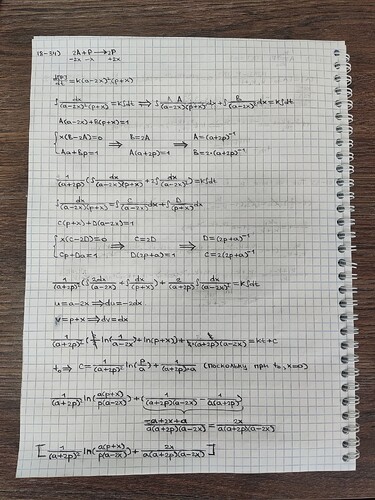 18-34) 2A+P→2P
-2x -x +2x
d[P]/dt = k(a-2x)²(p+x)
∫dx/((a-2x)²(p+x)) = k∫dt ⟹ ∫A/((a-2x)(p+x))dx + ∫B/(a-2x)²dx = k∫dt
A(a-2x)+B(p+x)=1
{x(B-2A)=0 ⟹ B=2A ⟹ A=(a+2p)⁻¹
{Aa+Bp=1 A(a+2p)=1 B=2·(a+2p)⁻¹
1/(a+2p)(∫dx/((a-2x)(p+x))+2∫dx/(a-2x)²)=k∫dt
∫dx/((a-2x)(p+x))=∫C/(a-2x)dx+∫D/(p+x)dx
C(p+x)+D(a-2x)=1
{x(C-2D)=0 ⟹ C=2D ⟹ D=(2p+a)⁻¹
{Cp+Da=1 D(2p+a)=1 C=2(2p+a)⁻¹
1/(a+2p)²(∫2dx/(a-2x)+∫dx/(p+x))+2/(a+2p)∫dx/(a-2x)²=k∫dt
u=a-2x ⟹ du=-2dx
v=p+x ⟹ dv=dx
1/(a+2p)²(ln(1/(a-2x))+ln(p+x))+1/((a+2p)(a-2x))=kt+C
t₀ ⟹ C=1/(a+2p)² ln(p/a)+1/((a+2p)·a) (поскольку при t₀, x=0)
1/(a+2p)² ln(a(p+x)/(p(a-2x)))+(1/((a+2p)(a-2x))-1/(a(a+2p)))
(-a+2x+a)/(a(a+2p)(a-2x))=2x/(a(a+2p)(a-2x))
[1/(a+2p)² ln(a(p+x)/(p(a-2x)))+2x/(a(a+2p)(a-2x))]